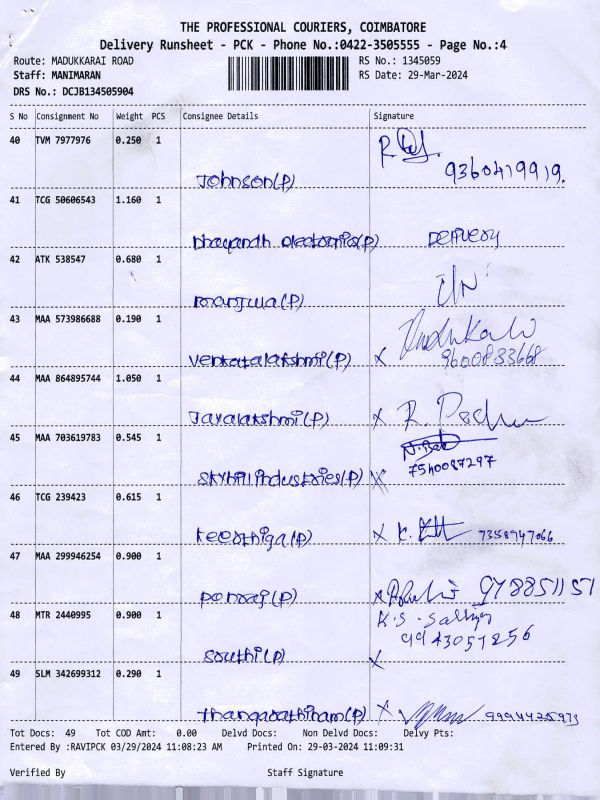 THE PROFESSIONAL COURIERS, COIMBATORE
Delivery Runsheet - PCK - Phone No.:0422-3505555 - Page No.:4
Route: MADUKKARAI ROAD RS No.: 1345059
Staff: MANIMARAN RS Date: 29-Mar-2024
DRS No.: DCJB134505904
S No Consignment No Weight PCS Consignee Details Signature
40 TVM 7977976 0.250 1
Johnson(P) 9360419919.
41 TCG 50606543 1.160 1
(P) Delivery
42 ATK 538547 0.680 1
manjula(P)
43 MAA 573986688 0.190 1
venkatalakshmi(P) x 9600833668
44 MAA 864895744 1.050 1
Jayalakshmi(P) x R.
45 MAA 703619783 0.545 1
7540087297
industries(P) x
46 TCG 239423 0.615 1
keerthiga(P) x K. 7358947066
47 MAA 299946254 0.900 1
ponraj(P) x 978851151
48 MTR 2440995 0.900 1
K.S.
9943057256
southi(P) x
49 SLM 342699312 0.290 1
thangarathinam(P) x 9994425973
Tot Docs: 49 Tot COD Amt: 0.00 Delvd Docs: Non Delvd Docs: Delvy Pts:
Entered By :RAVIPCK 03/29/2024 11:08:23 AM Printed On: 29-03-2024 11:09:31
Verified By Staff Signature